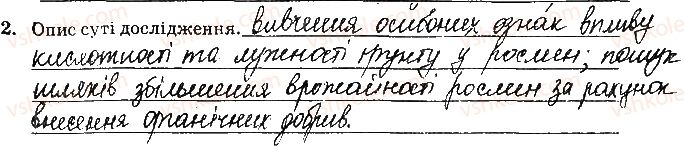 2. Опис суті дослідження. вивчення осибоних озна́к впливу
кислотності та лужності ґрунту у рослин; пошук
шляхів збільшення врожайності рослин за рахунок
внесення органічних добрив.